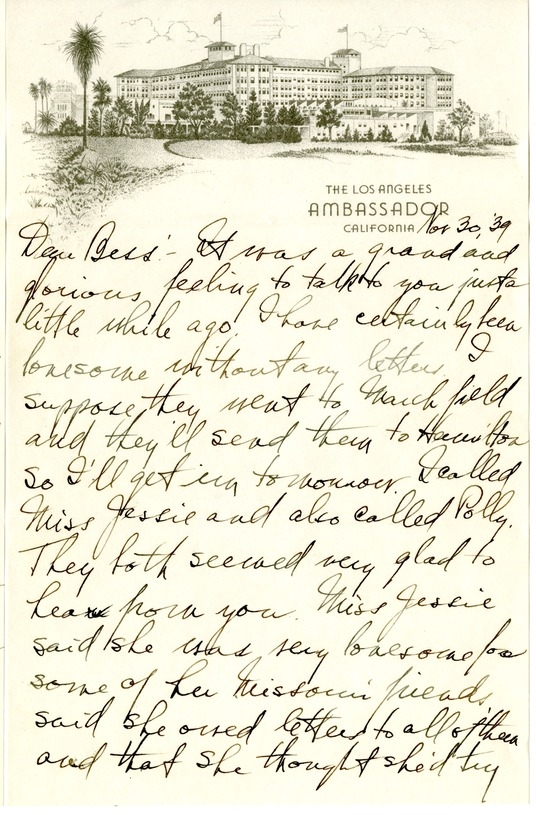 THE LOS ANGELES
AMBASSADOR
CALIFORNIA Nov 30, '39
Dear Bess:- It was a grand and
glorious feeling to talk to you just a
little while ago. I have certainly been
lonesome without any letters. I
suppose they went to March field
and they'll send them to Hamilton
so I'll get 'em tomorrow. I called
Miss Jessie and also called Polly.
They both seemed very glad to
hear from you. Miss Jessie
said she was very lonesome for
some of her Missouri friends,
said she owed letters to all of them
and that she thought she'd try